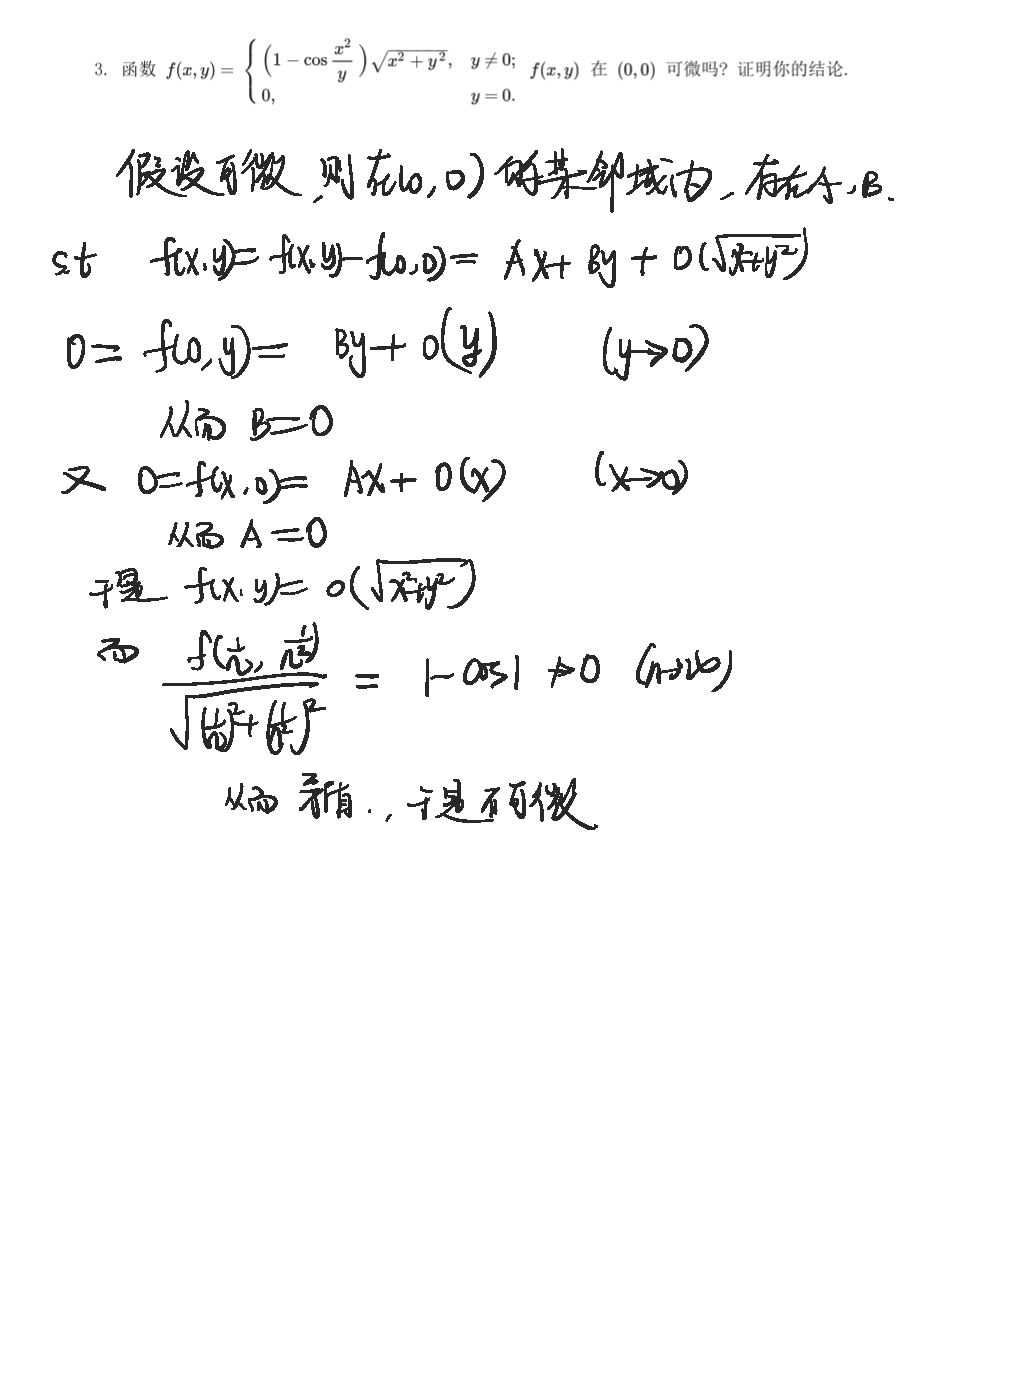 3. 函数 f(x,y) = { (1 − cos x²/y) √(x² + y²), y ≠ 0; 0, y = 0. f(x,y) 在 (0,0) 可微吗? 证明你的结论.
假设可微,则在(0,0)的某邻域内,存在A,B.
st f(x,y)=f(x,y)-f(0,0)= Ax+By+o(√(x²+y²))
0= f(0,y)= By+o(y) (y→0)
从而 B=0
又 0=f(x,0)= Ax+o(x) (x→0)
从而 A=0
于是 f(x,y)= o(√(x²+y²))
而 f(1/n, 1/n²) / √((1/n)²+(1/n²)²) = 1-cos1 ↛0 (n→∞)
从而 矛盾.,于是不可微